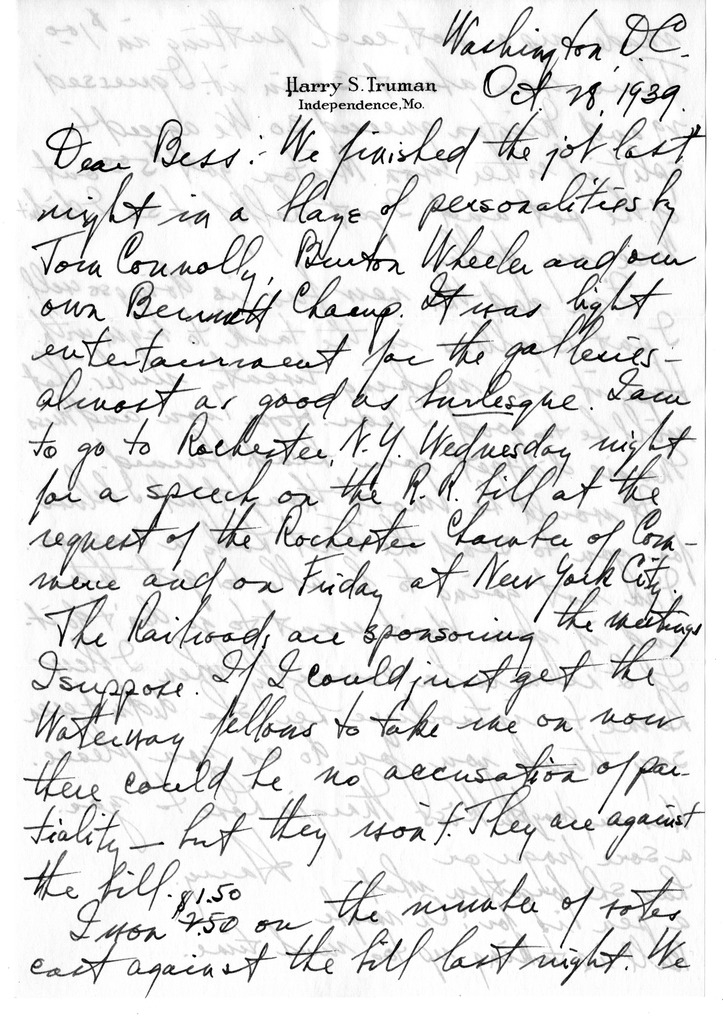 Washington, D.C.
Harry S. Truman
Independence, Mo.
Oct. 28, 1939.
Dear Bess:- We finished the job last
night in a blaze of personalities by
Tom Connolly, Burton Wheeler and our
own Bennett Champ. It was light
entertainment for the galleries-
almost as good as burlesque. I am
to go to Rochester, N.Y. Wednesday night
for a speech on the R.R. bill at the
request of the Rochester Chamber of Com-
merce and on Friday at New York City.
The Railroads are sponsoring the meetings
I suppose. If I could just get the
Waterway fellows to take me on now
there could be no accusation of par-
tiality - but they won't. They are against
the bill.
$1.50
I won 2.50 on the number of votes
cast against the bill last night. We